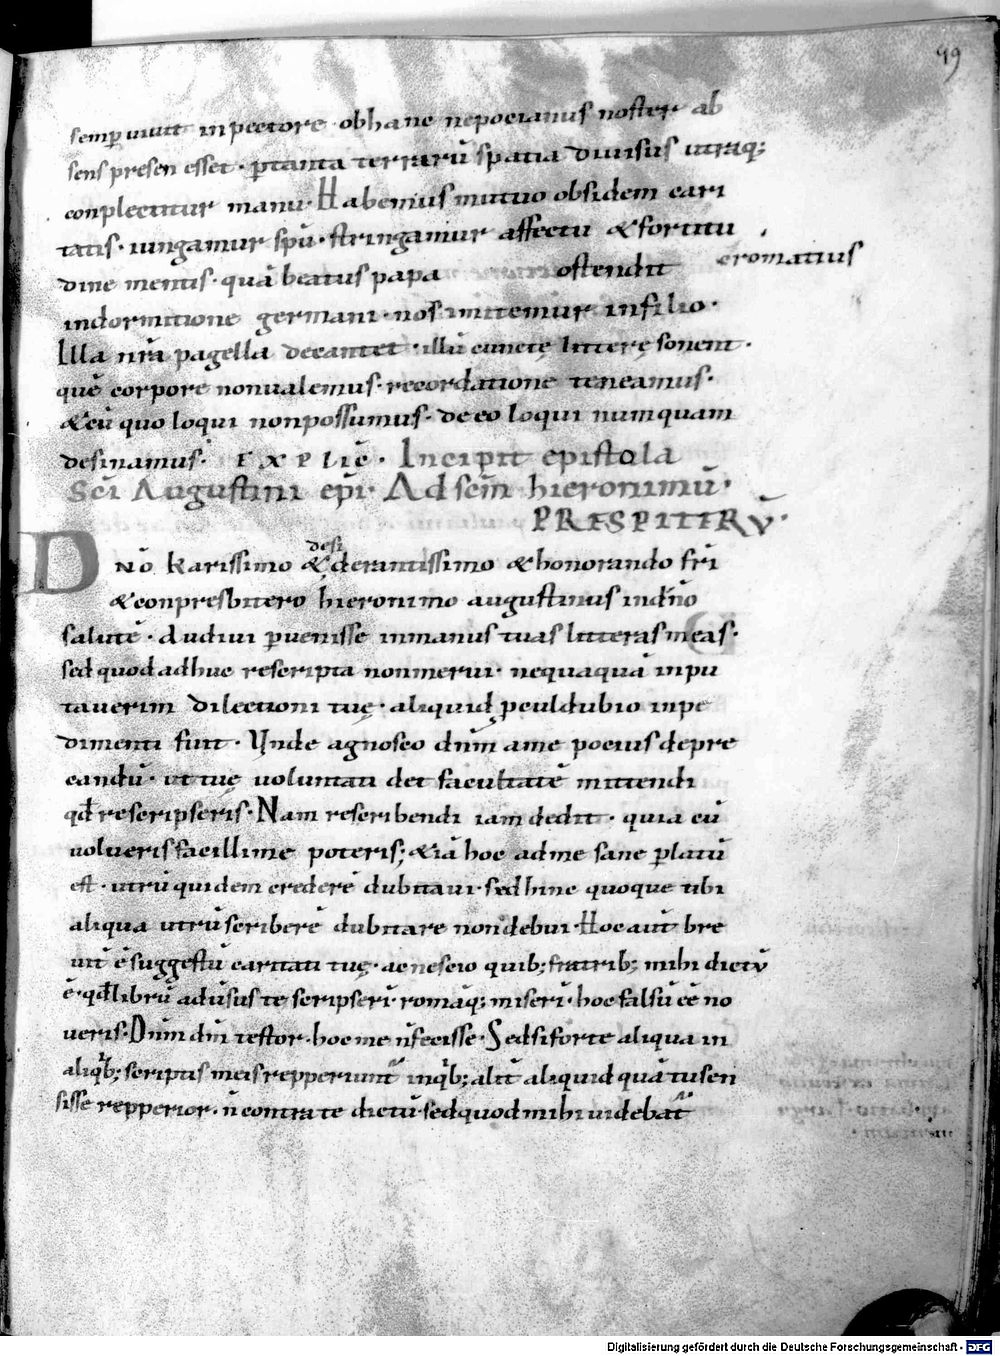 99
semp uiuit inpectore · obhanc nepocianus noster ab
sens presen esset · ꝑtanta terrarū spatia diuisus utraq;
conplectitur manu · Habemus mutuo obsidem cari
tatis · iungamur spū · stringamur affectu &fortitu
dine mentis · quā beatus papa ostendit cromatius
indormitione germani · nos imitemur infilio ·
Illa nr̄a pagella decantet · illū cunctę litterę sonent ·
quē corpore nonualemus · recordatione teneamus ·
&cū quo loqui nonpossumus · deeo loqui numquam
desinamus · EXPLIC̄ · Incipit epistola
Sc̄i Augustini ep̄i · Ad sc̄m hieronimū ·
PRESPITERV̄ ·
desi
DNŌ karissimo &derantissimo &honorando fr̄i
&conpresbitero hieronimo augustinus indn̄o
salutē · Audiui ꝑuenisse inmanus tuas litteras meas ·
sed quod adhuc rescripta nonmerui · nequaquā inpu
tauerim dilectioni tuę · aliquid ꝓculdubio inpe
dimenti fuit · Unde agnosco dn̄m ame pocius depre
candū · ut tuę uoluntati det facultatē mittendi
qđ rescripseris · Nam rescribendi iam dedit · quia cū
uolueris facillime poteris; &iā hoc adme sane ꝑlatū
est · utrū quidem crederē dubitaui · sed hinc quoque tibi
aliqua utrū scriberē dubitare nondebui · Hoc aūt bre
uit̄ ē suggestū caritati tuę · ac nescio quib; fratrib; mihi dictū
ē · qđ librū adūsus te scripserī romāq; miserī · hoc falsū eē no
ueris · Dn̄m dm̄ testor · hoc me n̄ fecisse · Sed si forte aliqua in
aliqb; scriptis meis repperiunt̄ inqb; alit̄ aliquid quā tu sen
sisse repperior · n̄ contra te dictū · sed quod mihi uidebat̄
Digitalisierung gefördert durch die Deutsche Forschungsgemeinschaft - DFG